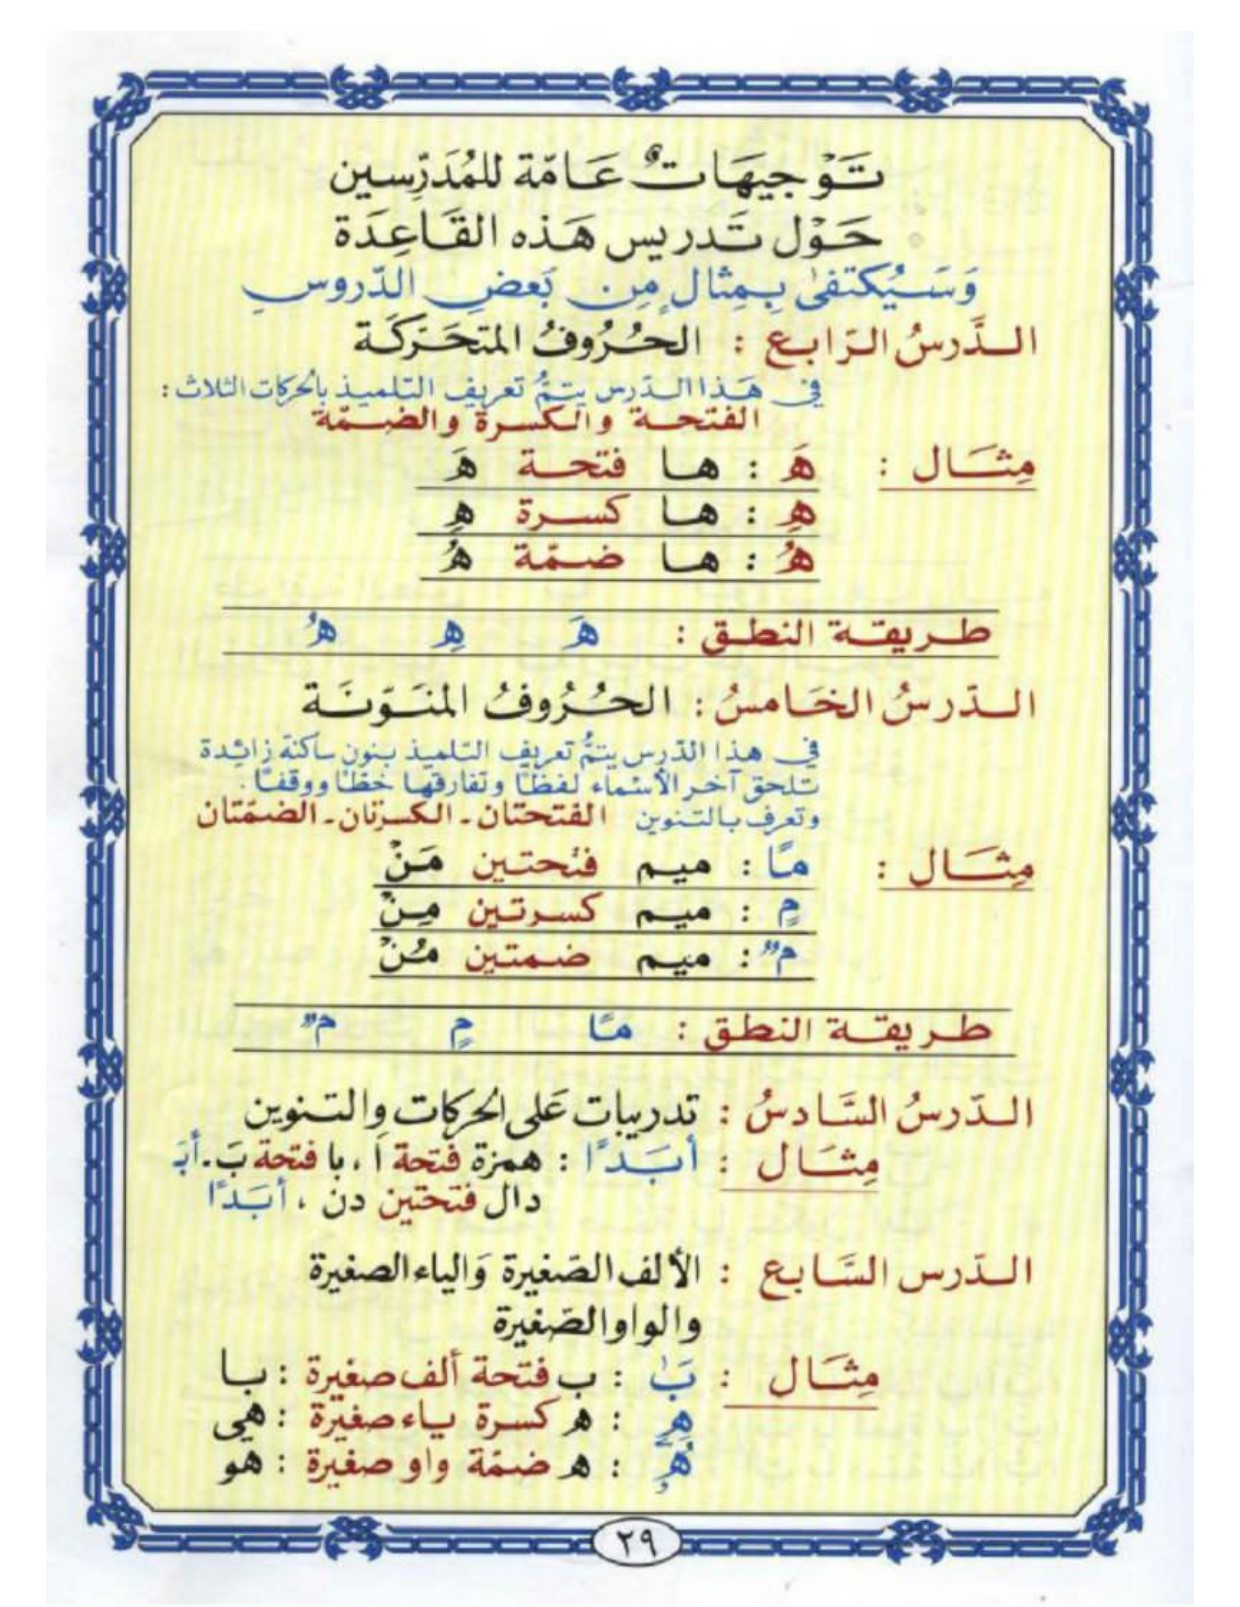 تَوْجِيهَاتٌ عَامّة للمُدَرِّسين
حَوْل تَدريس هَذه القَاعِدَة
وَسَيُكتفىٰ بِمِثالٍ مِن بَعضِ الدّروسِ
الدَّرسُ الرّابع : الحُرُوفُ المتحَرّكَة
في هَذا الدّرس يتمُّ تعريف التلميذ بالحركات الثلاث :
الفتحة والكسرة والضمّة
مِثَال : هَ : ها فتحة هَ
هِ : ها كسرة هِ
هُ : ها ضمّة هُ
طريقة النطق : هَ هِ هُ
الدّرسُ الخَامسُ : الحُرُوفُ المنَوّنَة
في هذا الدّرس يتمُّ تعريف التلميذ بنون ساكنة زائدة
تلحق آخر الأسماء لفظًا وتفارقها خطًا ووقفًا .
وتعرف بالتنوين الفتحتان - الكسرتان - الضمّتان
مِثَال : مًا : ميم فتحتين مَنْ
مٍ : ميم كسرتين مِنْ
مٌ : ميم ضمتين مُنْ
طريقة النطق : مًا مٍ مٌ
الدّرسُ السَّادسُ : تدريبات عَلى الحركات والتنوين
مِثَال : أبَدًا : همزة فتحة أَ ، با فتحة بَ - أبَ
دال فتحتين دن ، أبَدًا
الدّرس السَّابع : الألف الصّغيرة وَالياء الصغيرة
والواو الصّغيرة
مِثَال : بَٰ : ب فتحة ألف صغيرة : با
هِۦ : ه كسرة ياء صغيرة : هي
هُۥ : ه ضمّة واو صغيرة : هو
٢٩